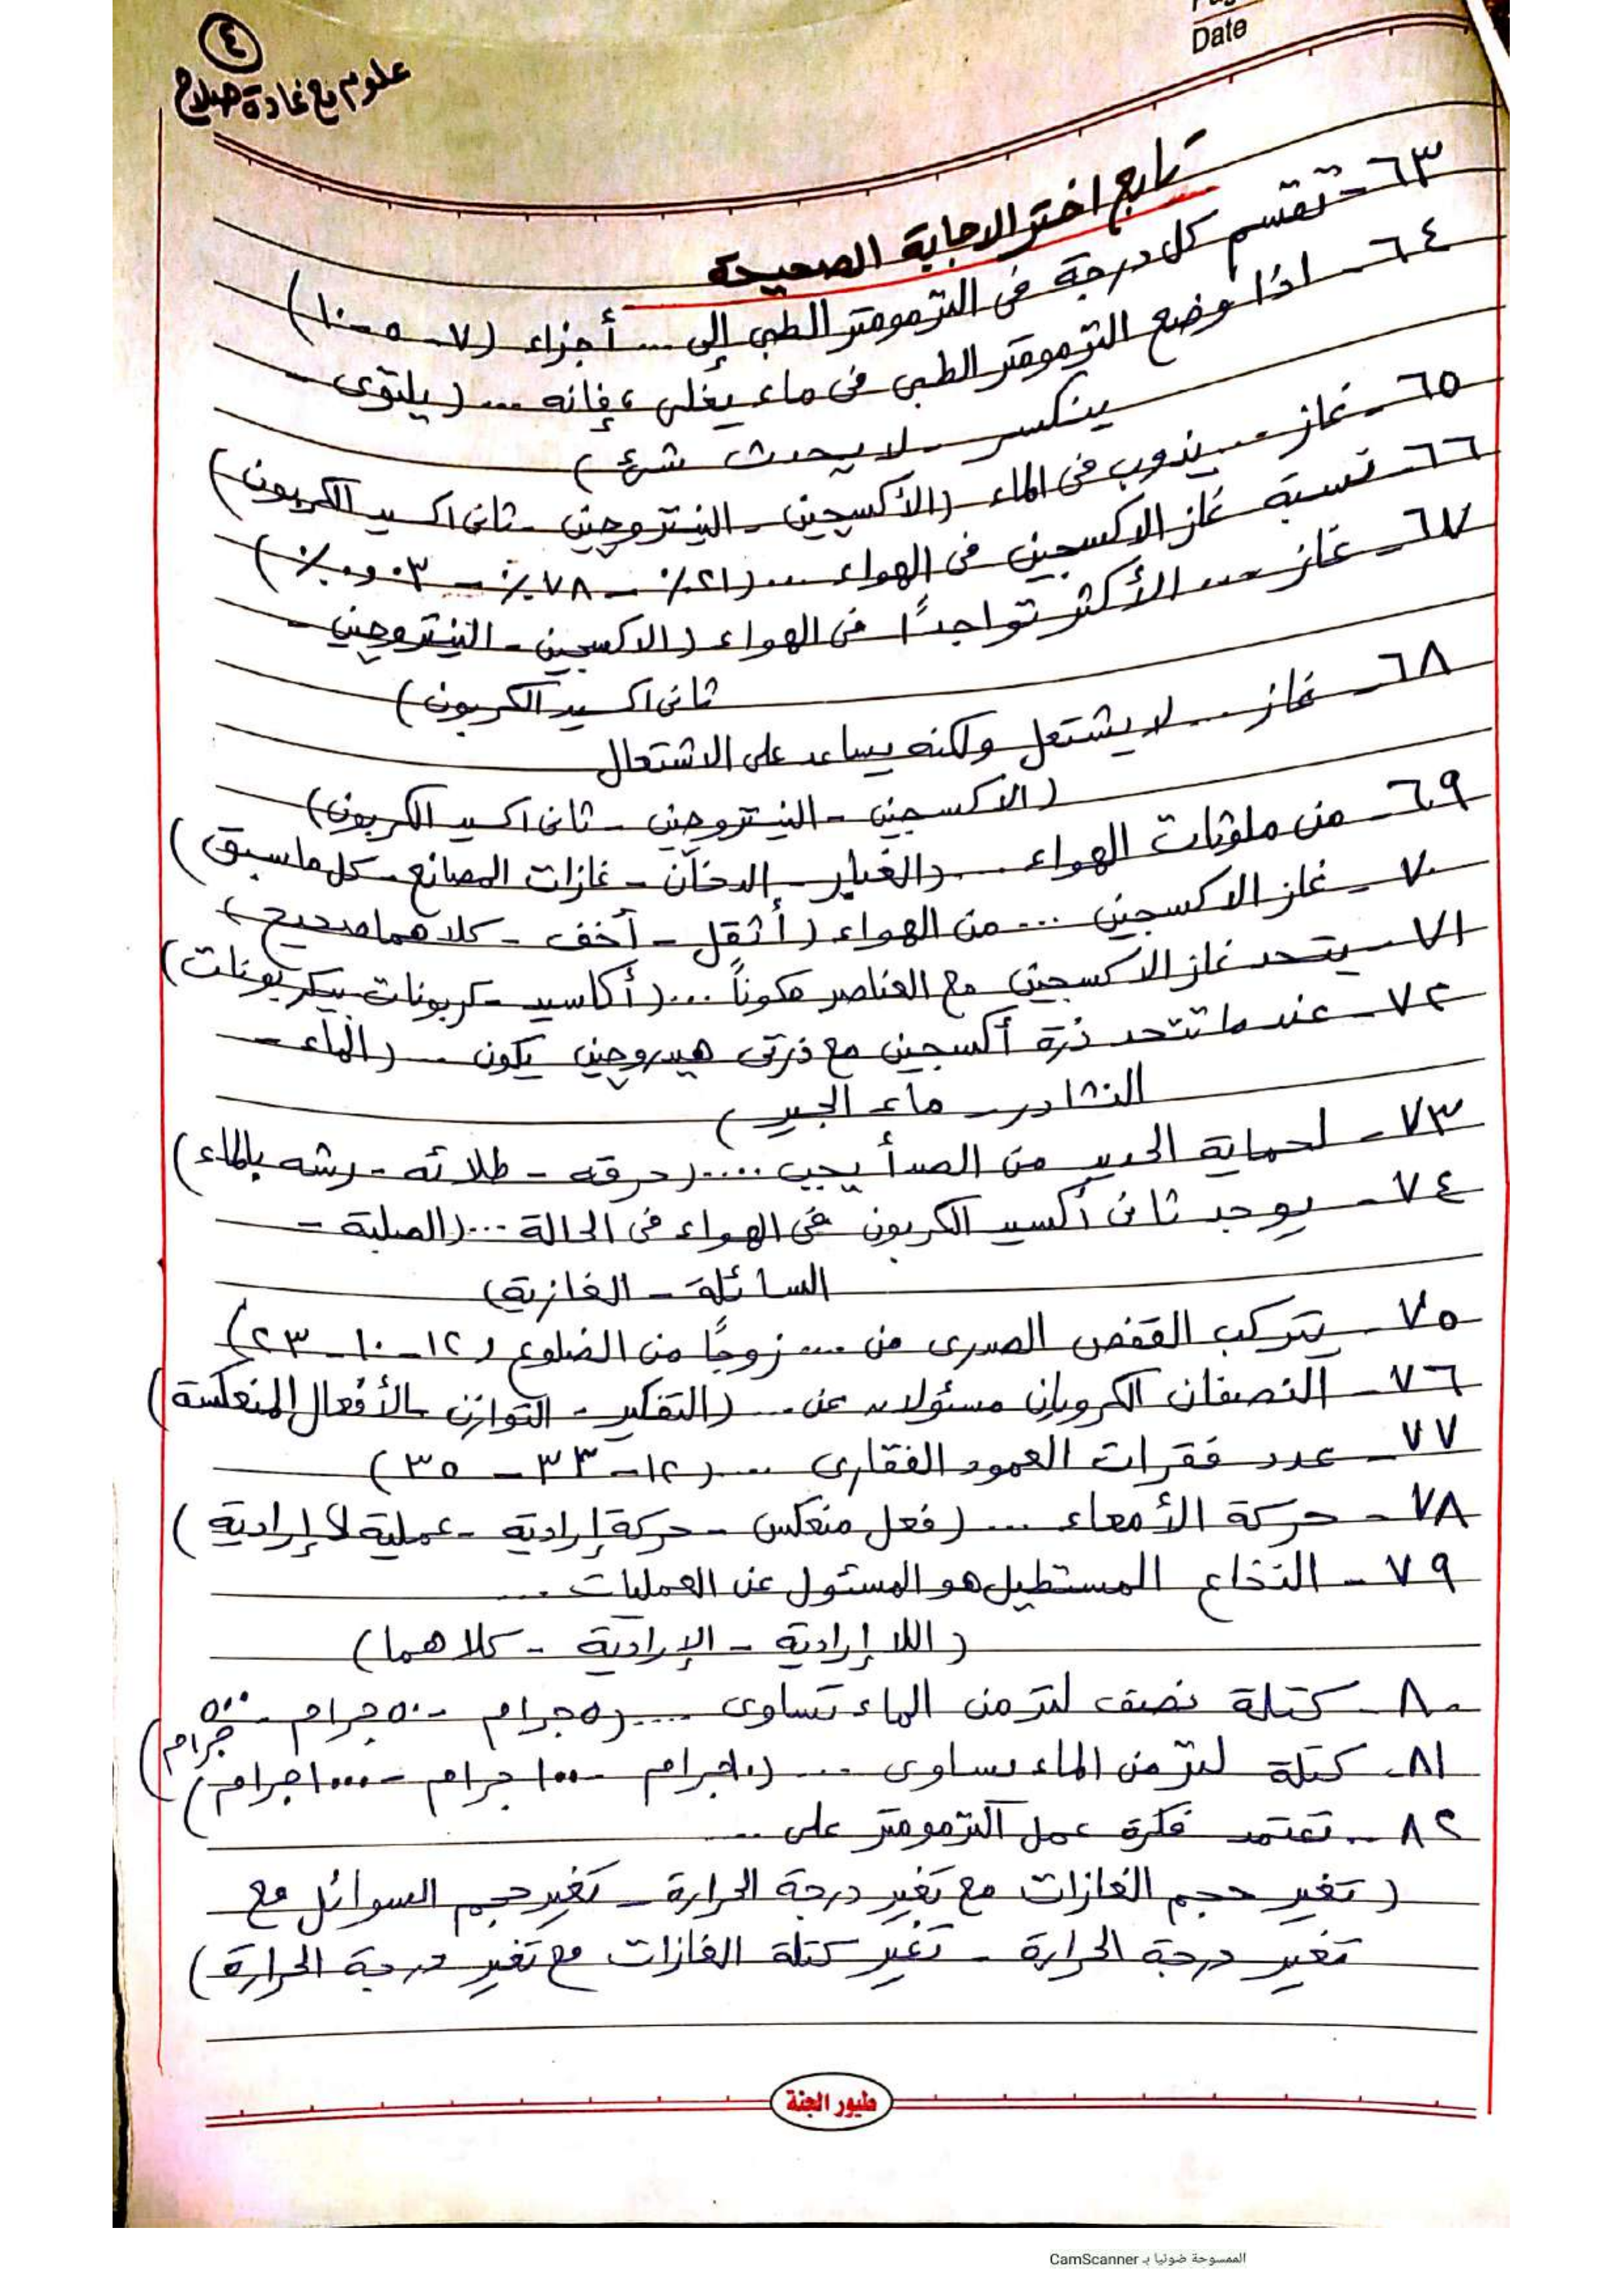 ٤
علوم مع غادة صلاح
Date
تابع اختر الاجابة الصحيحة
٦٣- تقسم كل درجة فى الترمومتر الطبى إلى ... أجزاء (٧ - ٥ - ١٠)
٦٤- اذا وضع الترمومتر الطبى فى ماء يغلى ، فإنه ... (يلتوى -
ينكسر - لا يحدث شئ)
٦٥- غاز ... يذوب فى الماء (الأكسجين - النيتروجين - ثانى اكسيد الكربون)
٦٦- نسبة غاز الاكسجين فى الهواء ... (٢١٪ - ٧٨٪ - ٠.٠٣٪)
٦٧- غاز ... الأكثر تواجداً فى الهواء (الاكسجين - النيتروجين -
ثانى اكسيد الكربون)
٦٨- غاز ... لا يشتعل ولكنه يساعد على الاشتعال
(الاكسجين - النيتروجين - ثانى اكسيد الكربون)
٦٩- من ملوثات الهواء ... (الغبار - الدخان - غازات المصانع - كل ماسبق)
٧٠- غاز الاكسجين ... من الهواء (أثقل - أخف - كلاهما صحيح)
٧١- يتحد غاز الاكسجين مع العناصر مكوناً ... (أكاسيد - كربونات - بيكربونات)
٧٢- عندما تتحد ذرة أكسجين مع ذرتى هيدروجين يكون ... (الماء -
النشادر - ماء الجير)
٧٣- لحماية الحديد من الصدأ يجب .... (حرقه - طلائه - رشه بالماء)
٧٤- يوجد ثانى أكسيد الكربون فى الهواء فى الحالة ... (الصلبة -
السائلة - الغازية)
٧٥- يتركب القفص الصدرى من ... زوجاً من الضلوع (١٢ - ١٠ - ٢٣)
٧٦- النصفان الكرويان مسئولان عن ... (التفكير - التوازن - الأفعال المنعكسة)
٧٧- عدد فقرات العمود الفقارى ... (١٢ - ٣٣ - ٣٥)
٧٨- حركة الأمعاء ... (فعل منعكس - حركة إرادية - عملية لا إرادية)
٧٩- النخاع المستطيل هو المسئول عن العمليات ...
(اللا إرادية - الإرادية - كلاهما)
٨٠- كتلة نصف لتر من الماء تساوى .... (٥ جرام - ٥٠ جرام - ٥٠٠ جرام)
٨١- كتلة لتر من الماء يساوى ... (١٠ جرام - ١٠٠ جرام - ١٠٠٠ جرام)
٨٢- تعتمد فكرة عمل الترمومتر على ...
(تغير حجم الغازات مع تغير درجة الحرارة - تغير حجم السوائل مع
تغير درجة الحرارة - تغير كتلة الغازات مع تغير درجة الحرارة)
طيور الجنة
الممسوحة ضوئيا بـ CamScanner